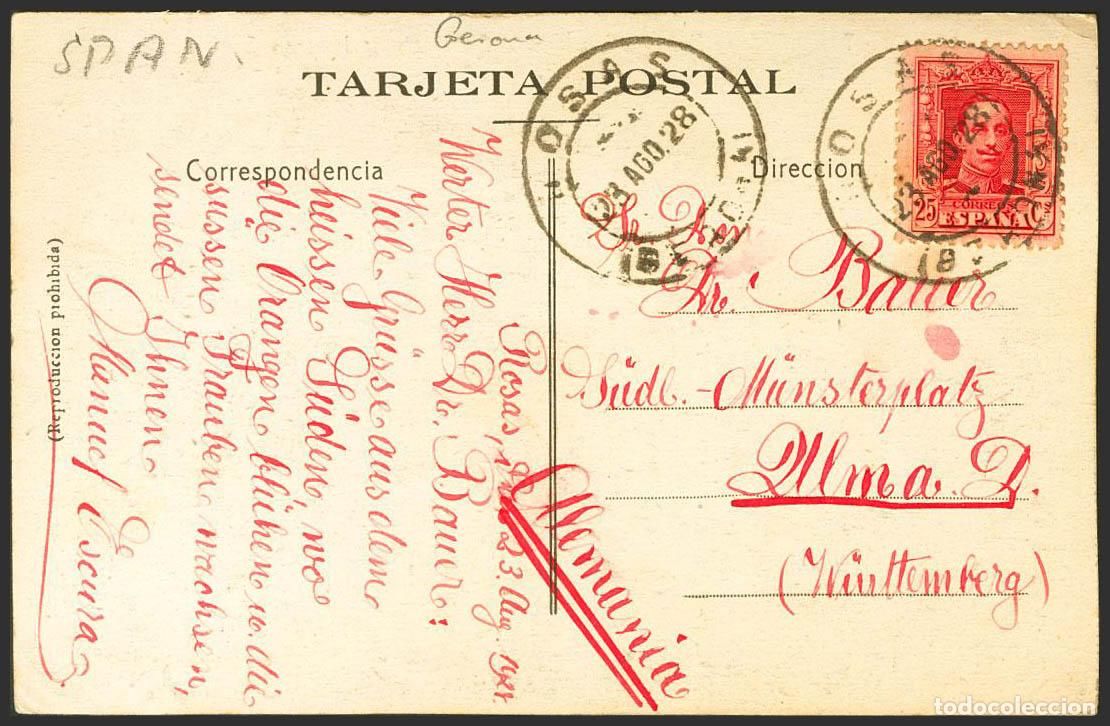 SPAN.
Gerona
TARJETA POSTAL
Correspondencia
Direccion
(Reproduccion prohibida)
Rosas, 23. Aug. 1928.
Werter Herr Dr. Bauer:
Viele Grüsse aus dem
heissen Süden, wo
die Orangen blühen u. die
süssen Trauben wachsen,
sendet Ihnen
Manuel
ROSAS
23 AGO. 28
ROSAS
23 AGO. 28
25 CORREOS
ESPAÑA
Dr. Bauer
Südl. - Münsterplatz
Ulm a. D.
(Württemberg)
Alemania
todocoleccion